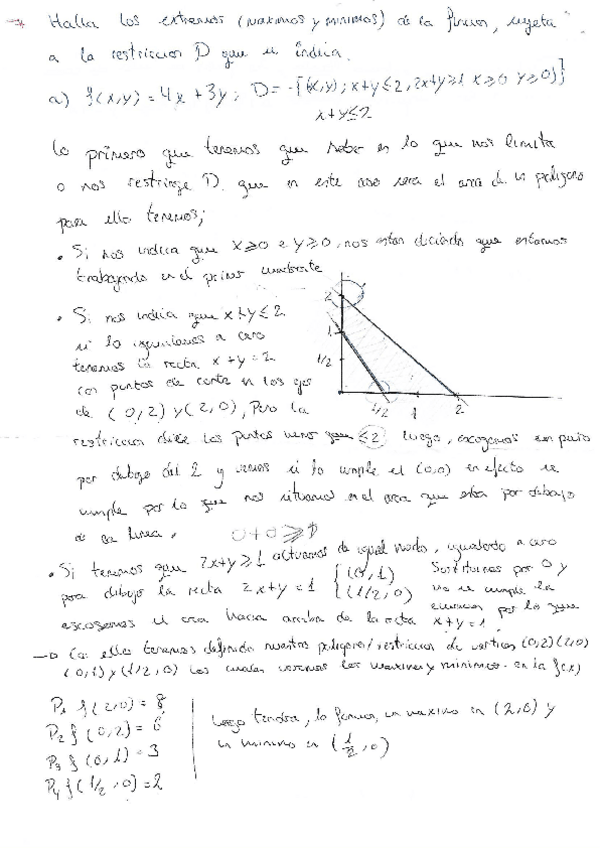 Halla los extremos (maximos y minimos) de la funcion, sujeta
a la restriccion D que se indica.
a) f(x,y) = 4x + 3y; D = {(x,y); x+y≤2, 2x+y≥1 x≥0 y≥0)}
x+y≤2
Lo primero que tenemos que es lo que nos limita
o nos restringe D. que en este caso sera el area de un poligono
para ello tenemos;
• Si nos indica que x≥0 e y≥0, nos estan diciendo que estamos
trabajando en el primer cuadrante
• Si nos indica que x+y≤2
si lo igualamos a cero
tenemos la recta x+y=2
con puntos de corte en los ejes
de (0,2) y (2,0), Pero la
2
1
1/2
1/2
1
2
restriccion dice los puntos menores que ≤2 luego, escogemos un punto
por debajo del 2 y vemos si lo cumple el (0,0) en efecto se
cumple por lo que nos situamos en el area que esta por debajo
de la linea. 0+0≥
• Si tenemos que 2x+y≥1 actuamos de igual modo, igualando a cero
para dibujo la recta 2x+y=1 { (0,1) (1/2,0)
Sustituimos por 0 y
no se cumple la
ecuacion por lo que
escogemos el area hacia arriba de la recta x+y=1
→ Con ellas tenemos definido nuestro poligono/restriccion de vertices (0,2)(2,0)
(0,1) y (1/2,0) los cuales veremos los maximos y minimos en la f(x)
P1 f(2,0) = 8
P2 f(0,2) = 6
P3 f(0,1) = 3
P4 f(1/2,0) = 2
Luego tendra, la funcion, un maximo en (2,0) y
un minimo en (1/2,0)